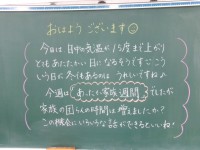 おはようございます
今日は日中の気温が15度まで上がり
とてもあたたかい日になるそうです。こう
いう日が冬にもあるのはうれしいですね♪
今週は「あったか家族週間」でしたが
家族の団らんの時間は増えましたか?
この機会にいろいろな話ができるといいね!